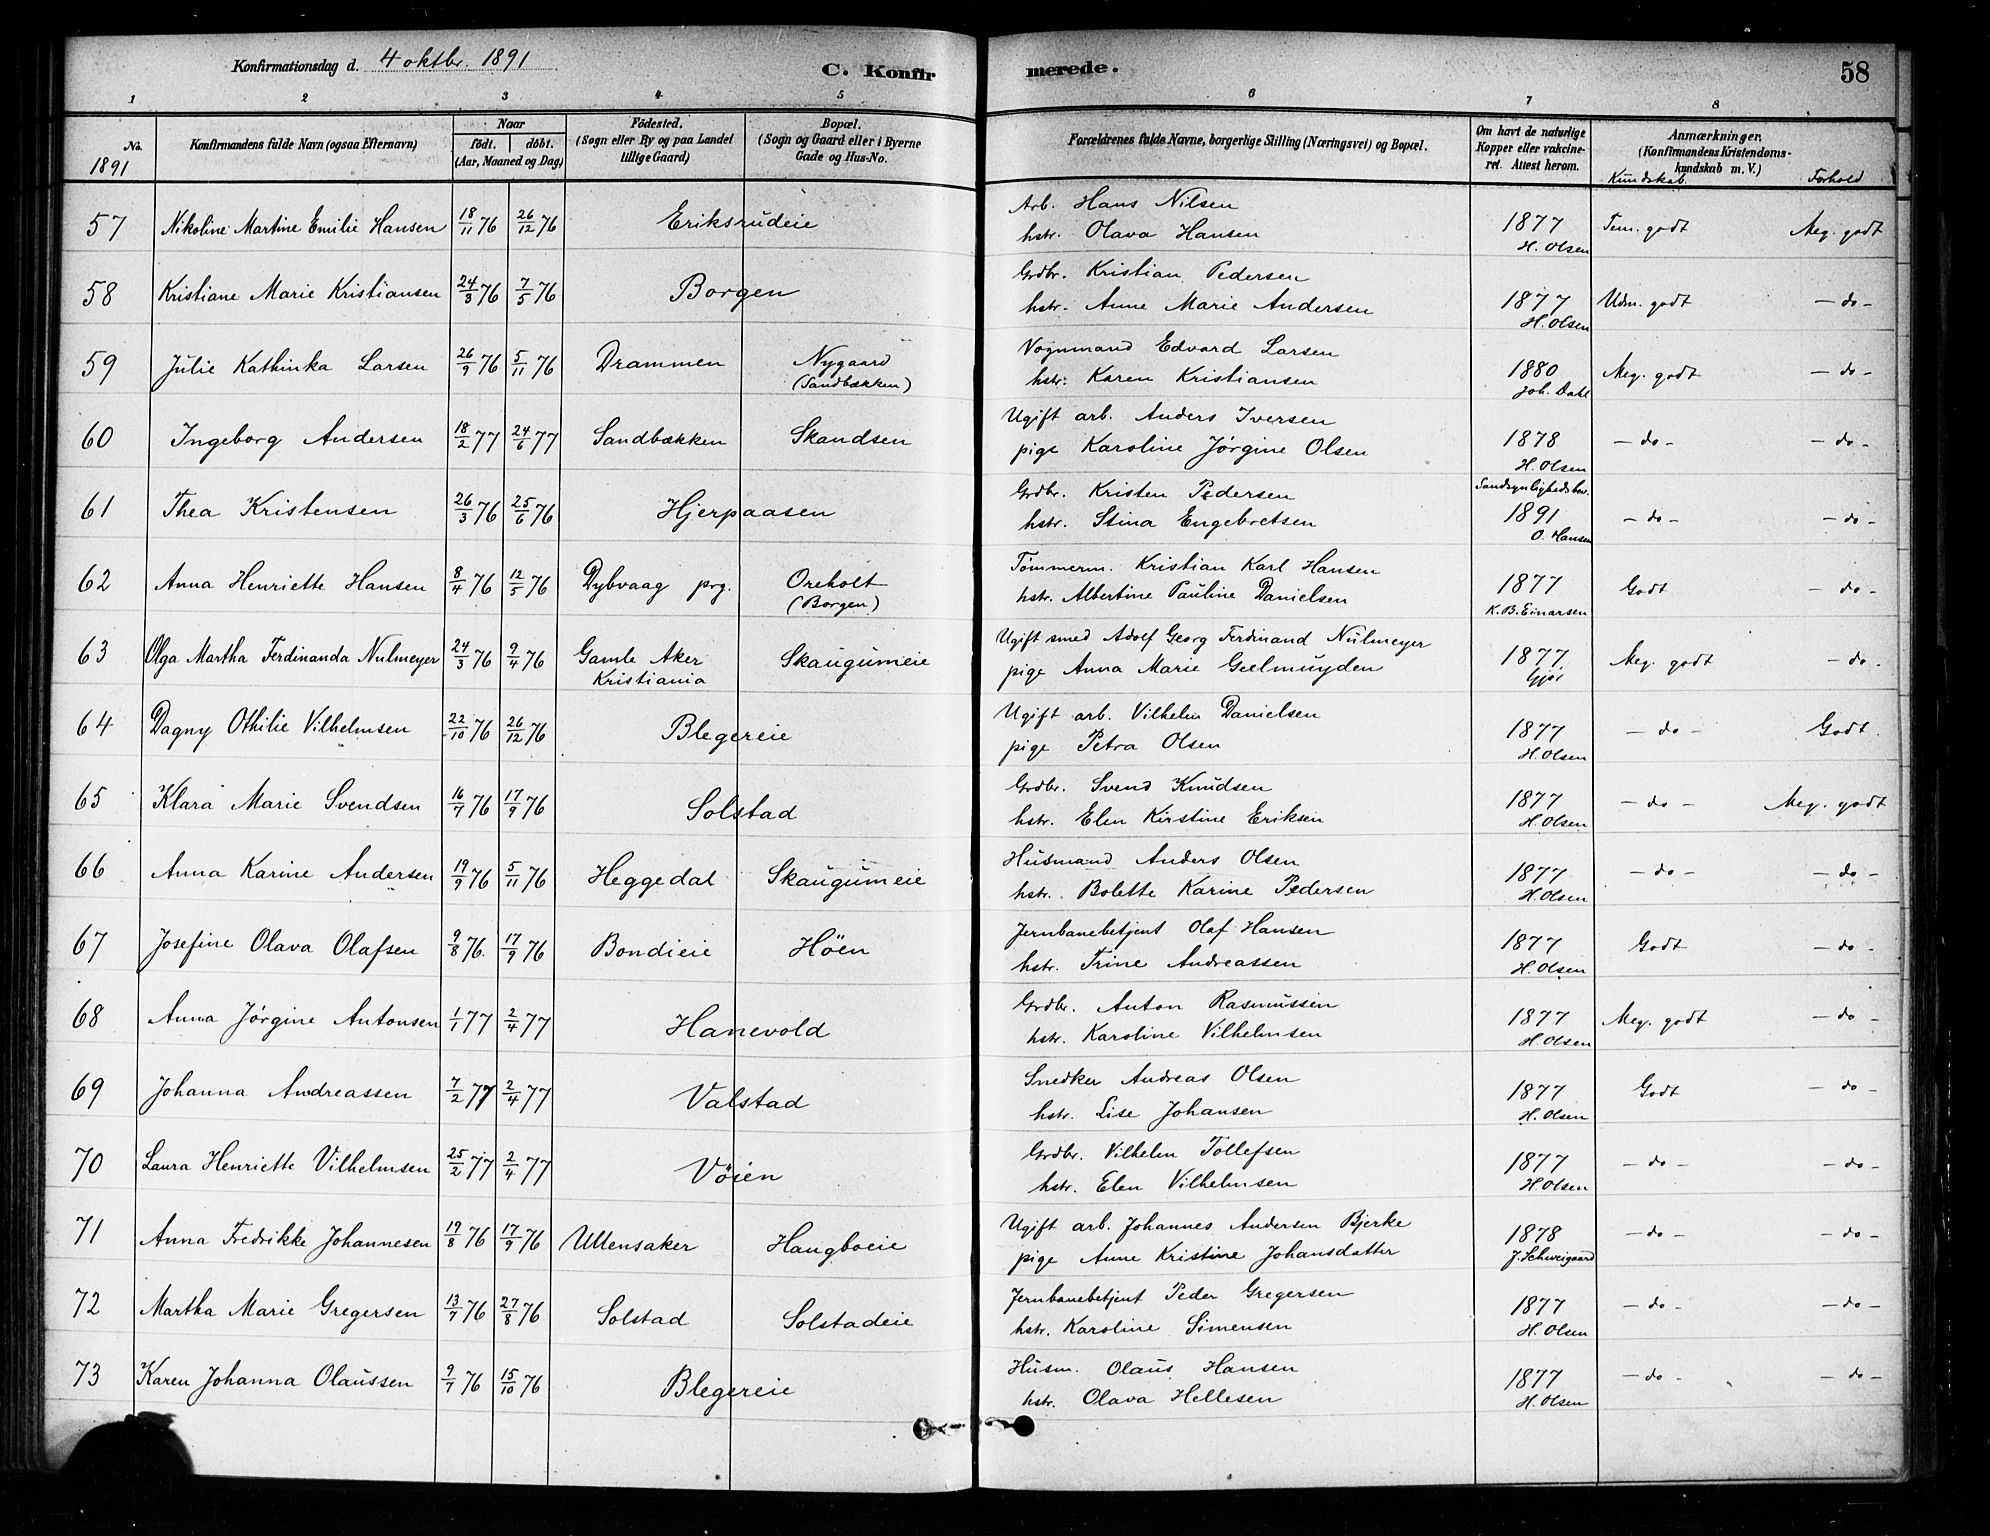 Konfirmationsdag d. 4 oktbr. 1891 C. Konfirmerede. 58
1 2 3 4 5 6 7 8
No. 1891 Konfirmandens fulde Navn (ogsaa Efternavn) Naar født. døbt. (Aar, Maaned og Dag) Fødested. (Sogn eller By og paa Landet tillige Gaard) Bopæl. (Sogn og Gaard eller i Byerne Gade og Hus-No. Forældrenes fulde Navne, borgerlige Stilling (Næringsvei) og Bopæl. Om havt de naturlige Kopper eller vakcineret. Attest herom. Anmærkninger. (Konfirmandens Kristendomskundskab m. V.) Kundskab. Forhold
57 Nikoline Martine Emilie Hansen 18/11 76 26/12 76 Eriksrudeie Arb. Hans Nilsen
hstr. Olava Hansen 1877 H. Olsen Tem. godt Meg. godt
58 Kristiane Marie Kristiansen 24/3 76 7/5 76 Borgen Grdbr. Kristian Pedersen
hstr. Anne Marie Andersen 1877 H. Olsen Udm. godt – do –
59 Julie Kathinka Larsen 26/9 76 5/11 76 Drammen Nygaard (Sandbækken) Vognmand Edvard Larsen
hstr. Karen Kristiansen 1880 Joh. Dahl Meg. godt – do –
60 Ingeborg Andersen 18/2 77 24/6 77 Sandbækken Skandsen Ugift arb. Anders Iversen
pige Karoline Jørgine Olsen 1878 H. Olsen – do – – do –
61 Thea Kristensen 26/3 76 25/6 76 Hjerpaasen Grdbr. Kristen Pedersen
hstr. Stina Engebretsen Sandsynlighedsbev. 1891 O. Hansen – do – – do –
62 Anna Henriette Hansen 8/4 76 12/5 76 Dybvaag prg. Oreholt (Borgen) Tømmerm. Kristian Karl Hansen
hstr. Albertine Pauline Danielsen 1877 K. B. Einarsen Godt – do –
63 Olga Martha Ferdinanda Nulmeyer 24/3 76 9/4 76 Gamle Aker Kristiania Skaugumeie Ugift smed Adolf Georg Ferdinand Nulmeyer
pige Anna Marie Geelmuyden 1877 Meg. godt – do –
64 Dagny Othilie Vilhelmsen 22/10 76 26/12 76 Blegereie Ugift arb. Vilhelm Danielsen
pige Petra Olsen 1877 H. Olsen – do – Godt.
65 Klara Marie Svendsen 16/7 76 17/9 76 Solstad Grdbr. Svend Knudsen
hstr. Elen Kirstine Eriksen 1877 H. Olsen – do – Meg. godt
66 Anna Karine Andersen 19/9 76 5/11 76 Heggedal Skaugumeie Husmand Anders Olsen
hstr. Bolette Karine Pedersen 1877 H. Olsen – do – – do –
67 Josefine Olava Olafsen 9/8 76. 17/9 76 Bondieie Höen Jernbanebetjent Olaf Hansen
hstr. Trine Andreassen 1877 H. Olsen Godt – do –
68 Anna Jørgine Antonsen 1/1 77 2/4 77 Hanevold Grdbr. Anton Rasmussen
hstr. Karoline Vilhelmsen 1877 H. Olsen Meg. godt – do –
69 Johanna Andreassen 7/2 77 2/4 77 Valstad Snedker Andreas Olsen
hstr. Lise Johansen 1877 H. Olsen Godt – do –
70 Laura Henriette Vilhelmsen 25/2 77 2/4 77 Vöien Grdbr. Vilhelm Tollefsen
hstr. Elen Vilhelmsen 1877 H. Olsen – do – – do –
71 Anna Fredrikke Johannesen 19/8 76 17/9 76 Ullensaker Haugboeie Ugift arb. Johannes Andersen Bjerke
pige Anne Kristine Johansdatter 1878 J. Schweigaard – do – – do –
72 Martha Marie Gregersen 13/7 76 27/8 76 Solstad Solstadeie Jernbanebetjent Peder Gregersen
hstr. Karoline Simensen 1877 H. Olsen – do – – do –
73 Karen Johanna Olaussen 9/7 76 15/10 76 Blegereie Husm. Olaus Hansen
hstr. Olava Hellesen 1877 H. Olsen – do – – do –